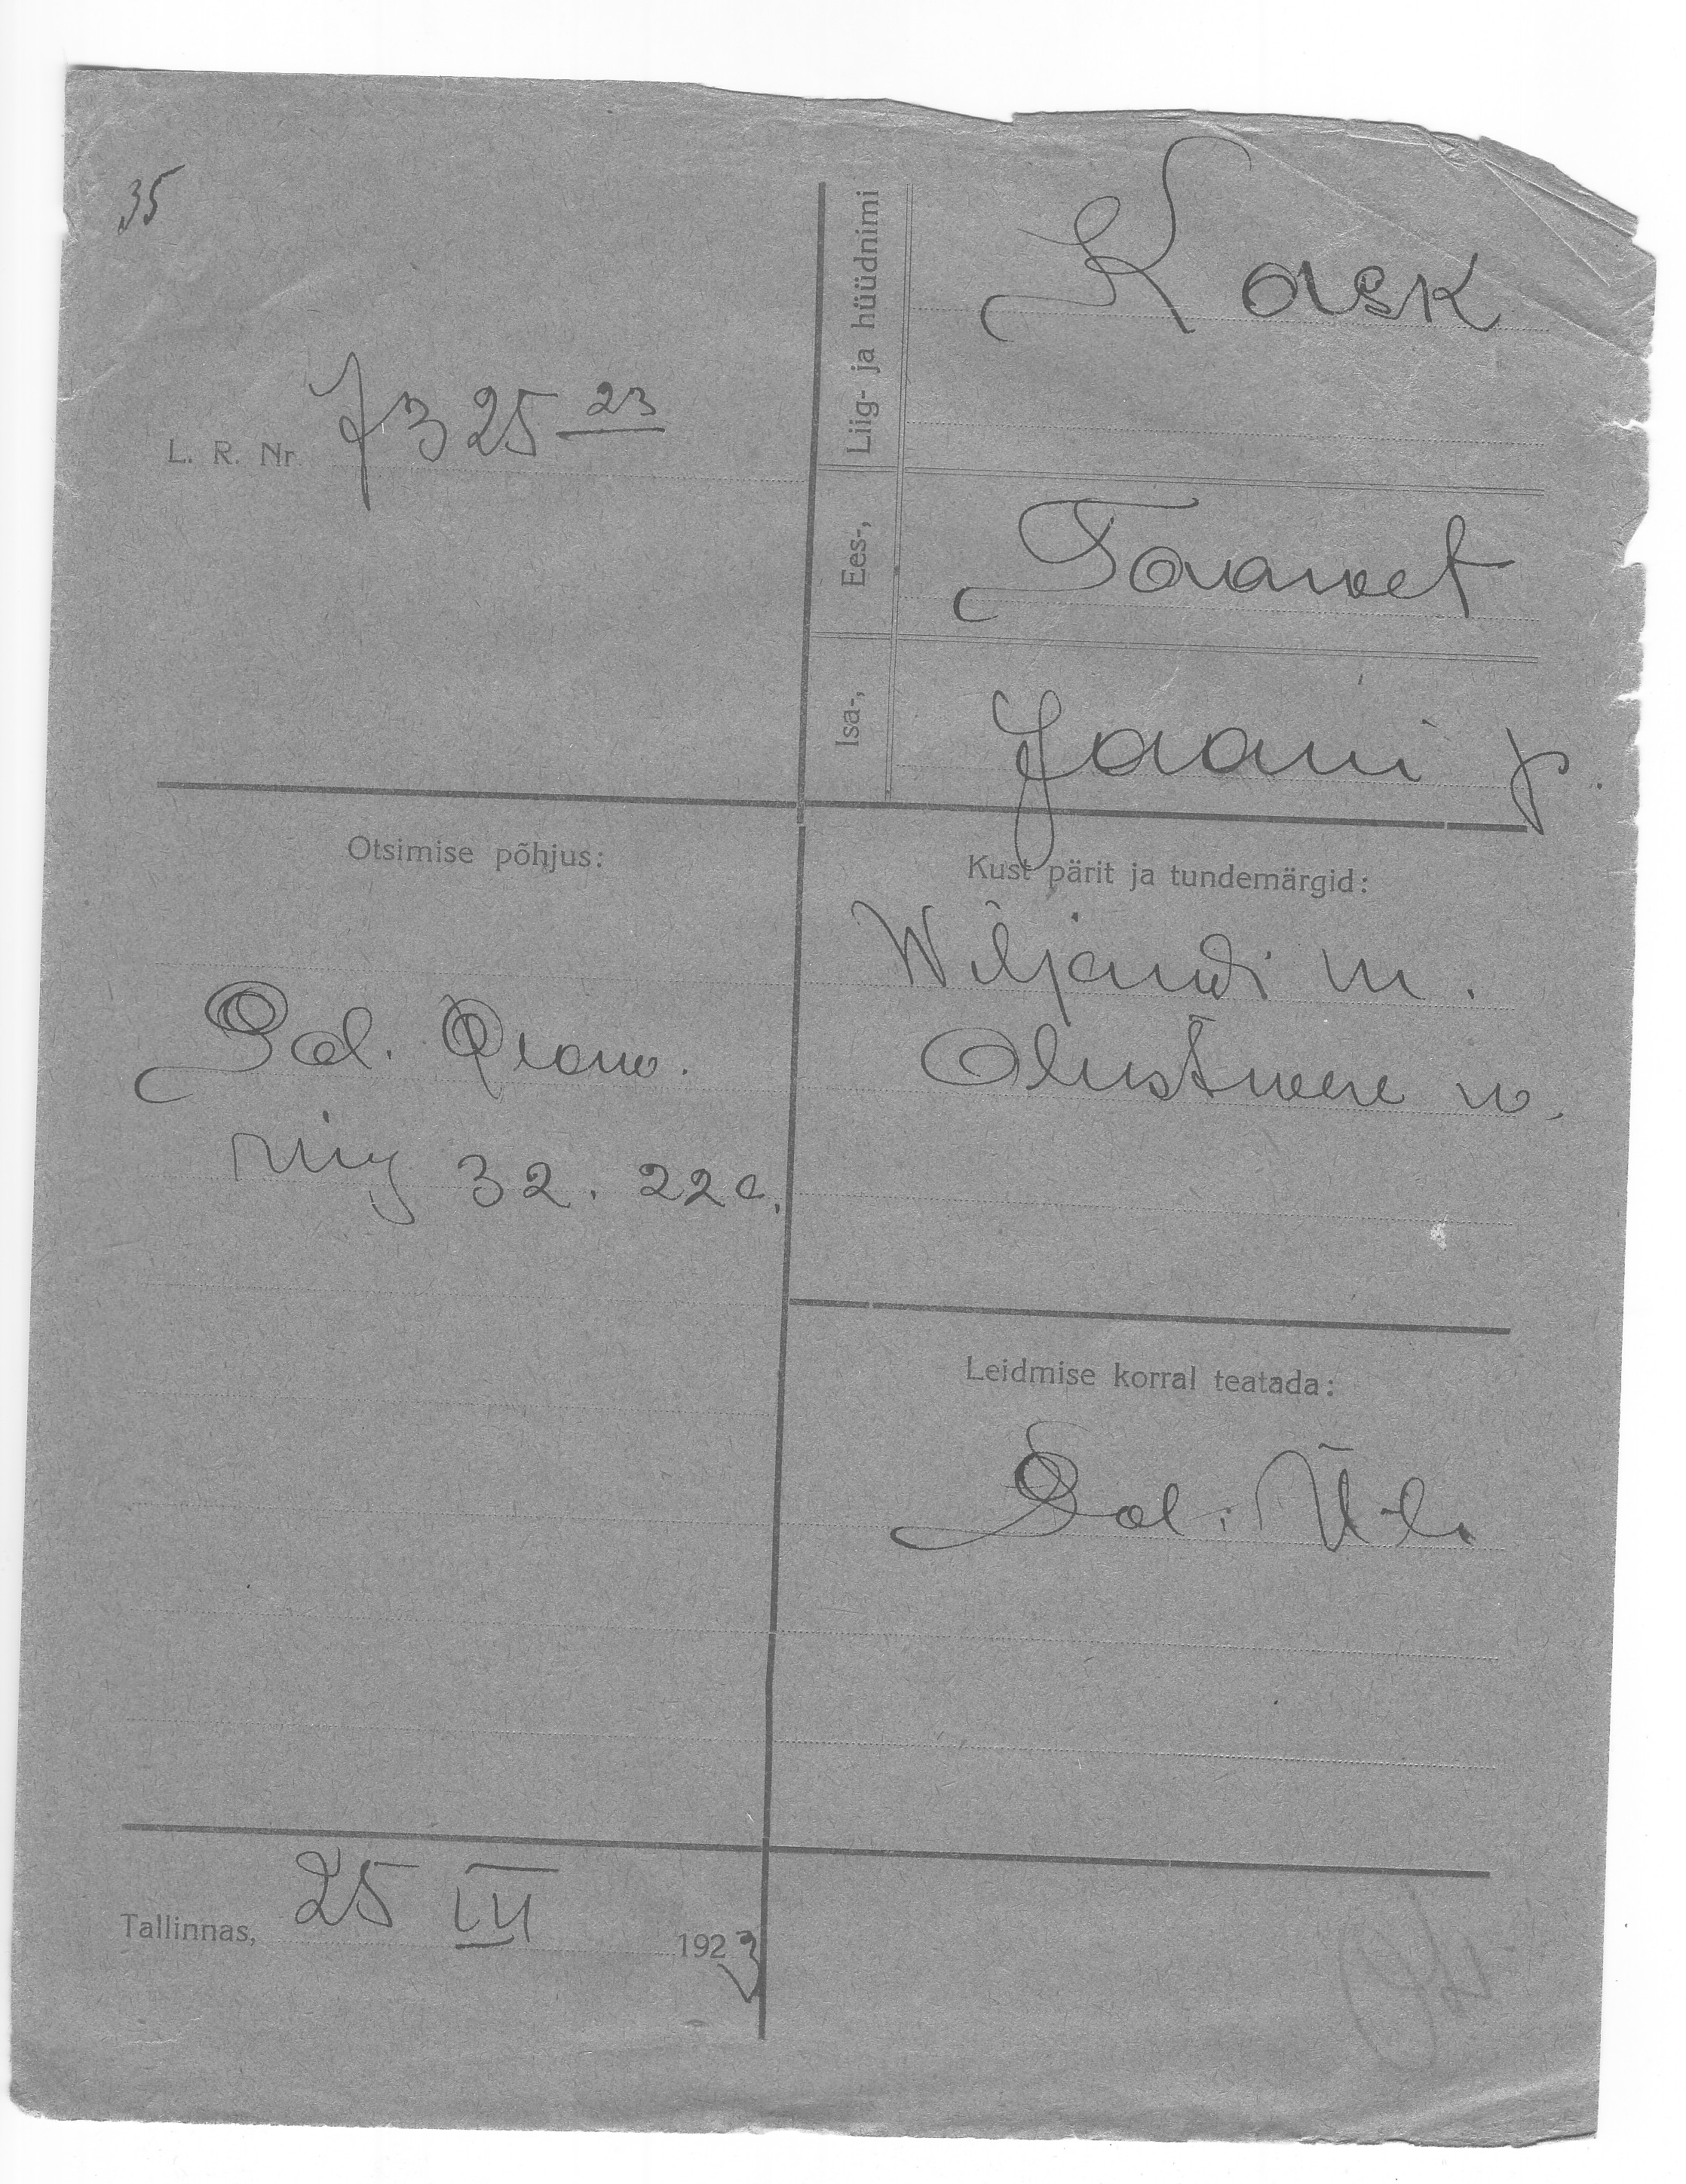 35
L. R. Nr. 7325 23
Liig- ja hüüdnimi
Kask
Ees-,
Taawet
Isa-,
Jaani p.
Otsimise põhjus:
Pol.
ring 32. 22a.
Kust pärit ja tundemärgid:
Wiljandi m.
Olustwere w.
Leidmise korral teatada:
Pol. Ül.
Tallinnas, 25 III 1923